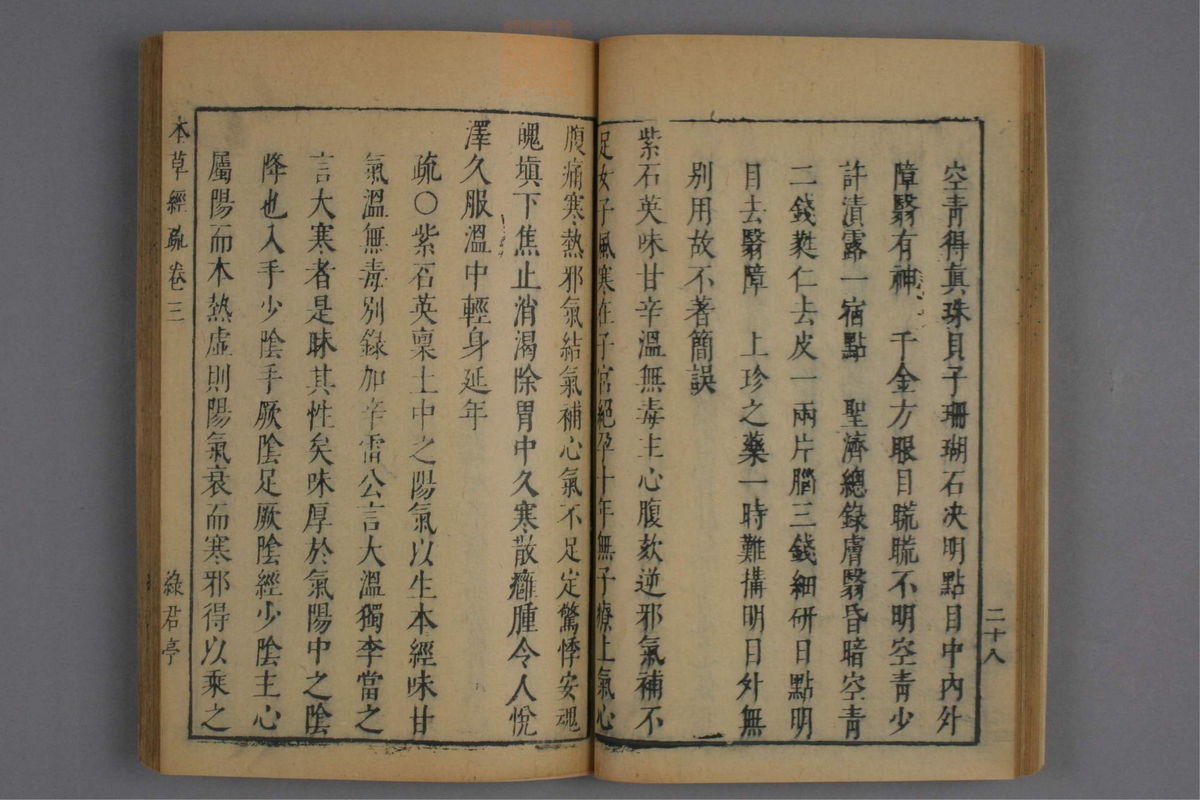 二十八
空青得眞珠貝子珊瑚石決明點目中內外
障翳有神　千金方眼目䀮䀮不明空青少
許漬露一宿點　聖濟總錄膚翳昏暗空青
二錢蕤仁去皮一兩片腦三錢細研日點明
目去翳障　上珍之藥一時難搆明目外無
別用故不著簡誤
紫石英味甘辛溫無毒主心腹欬逆邪氣補不
足女子風寒在子宮絕孕十年無子療上氣心
腹痛寒熱邪氣結氣補心氣不足定驚悸安魂
魄塡下焦止消渴除胃中久寒散癰腫令人悅
澤久服溫中輕身延年
疏〇紫石英稟土中之陽氣以生本經味甘
氣溫無毒別錄加辛雷公言大溫獨李當之
言大寒者是昧其性矣味厚於氣陽中之陰
降也入手少陰手厥陰足厥陰經少陰主心
屬陽而本熱虛則陽氣衰而寒邪得以乘之
本草經疏卷三
綠君亭